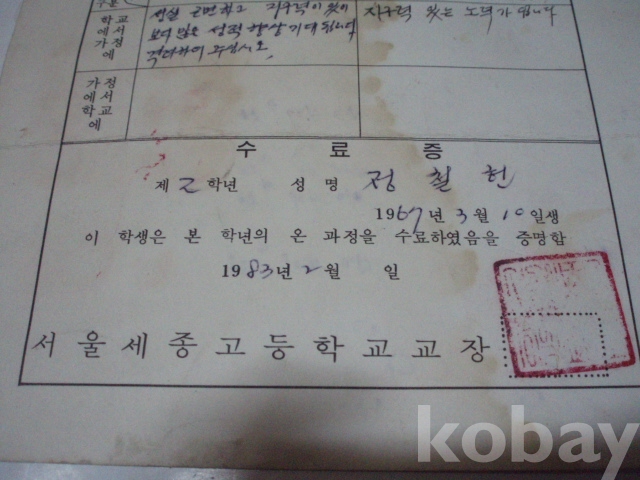 구분
학교에서 가정에
성실 근면하고 지구력이 있어 지구력 있는 노력가 입니다
보다 많은 성적 향상 기대 됩니다
격려하여 주십시오.
가정에서 학교에
수료증
제 2 학년 성명 정철헌
1967년 3월 10일생
이 학생은 본 학년의 온 과정을 수료하였음을 증명함
1983년 2월 일
서울세종고등학교교장
kobay